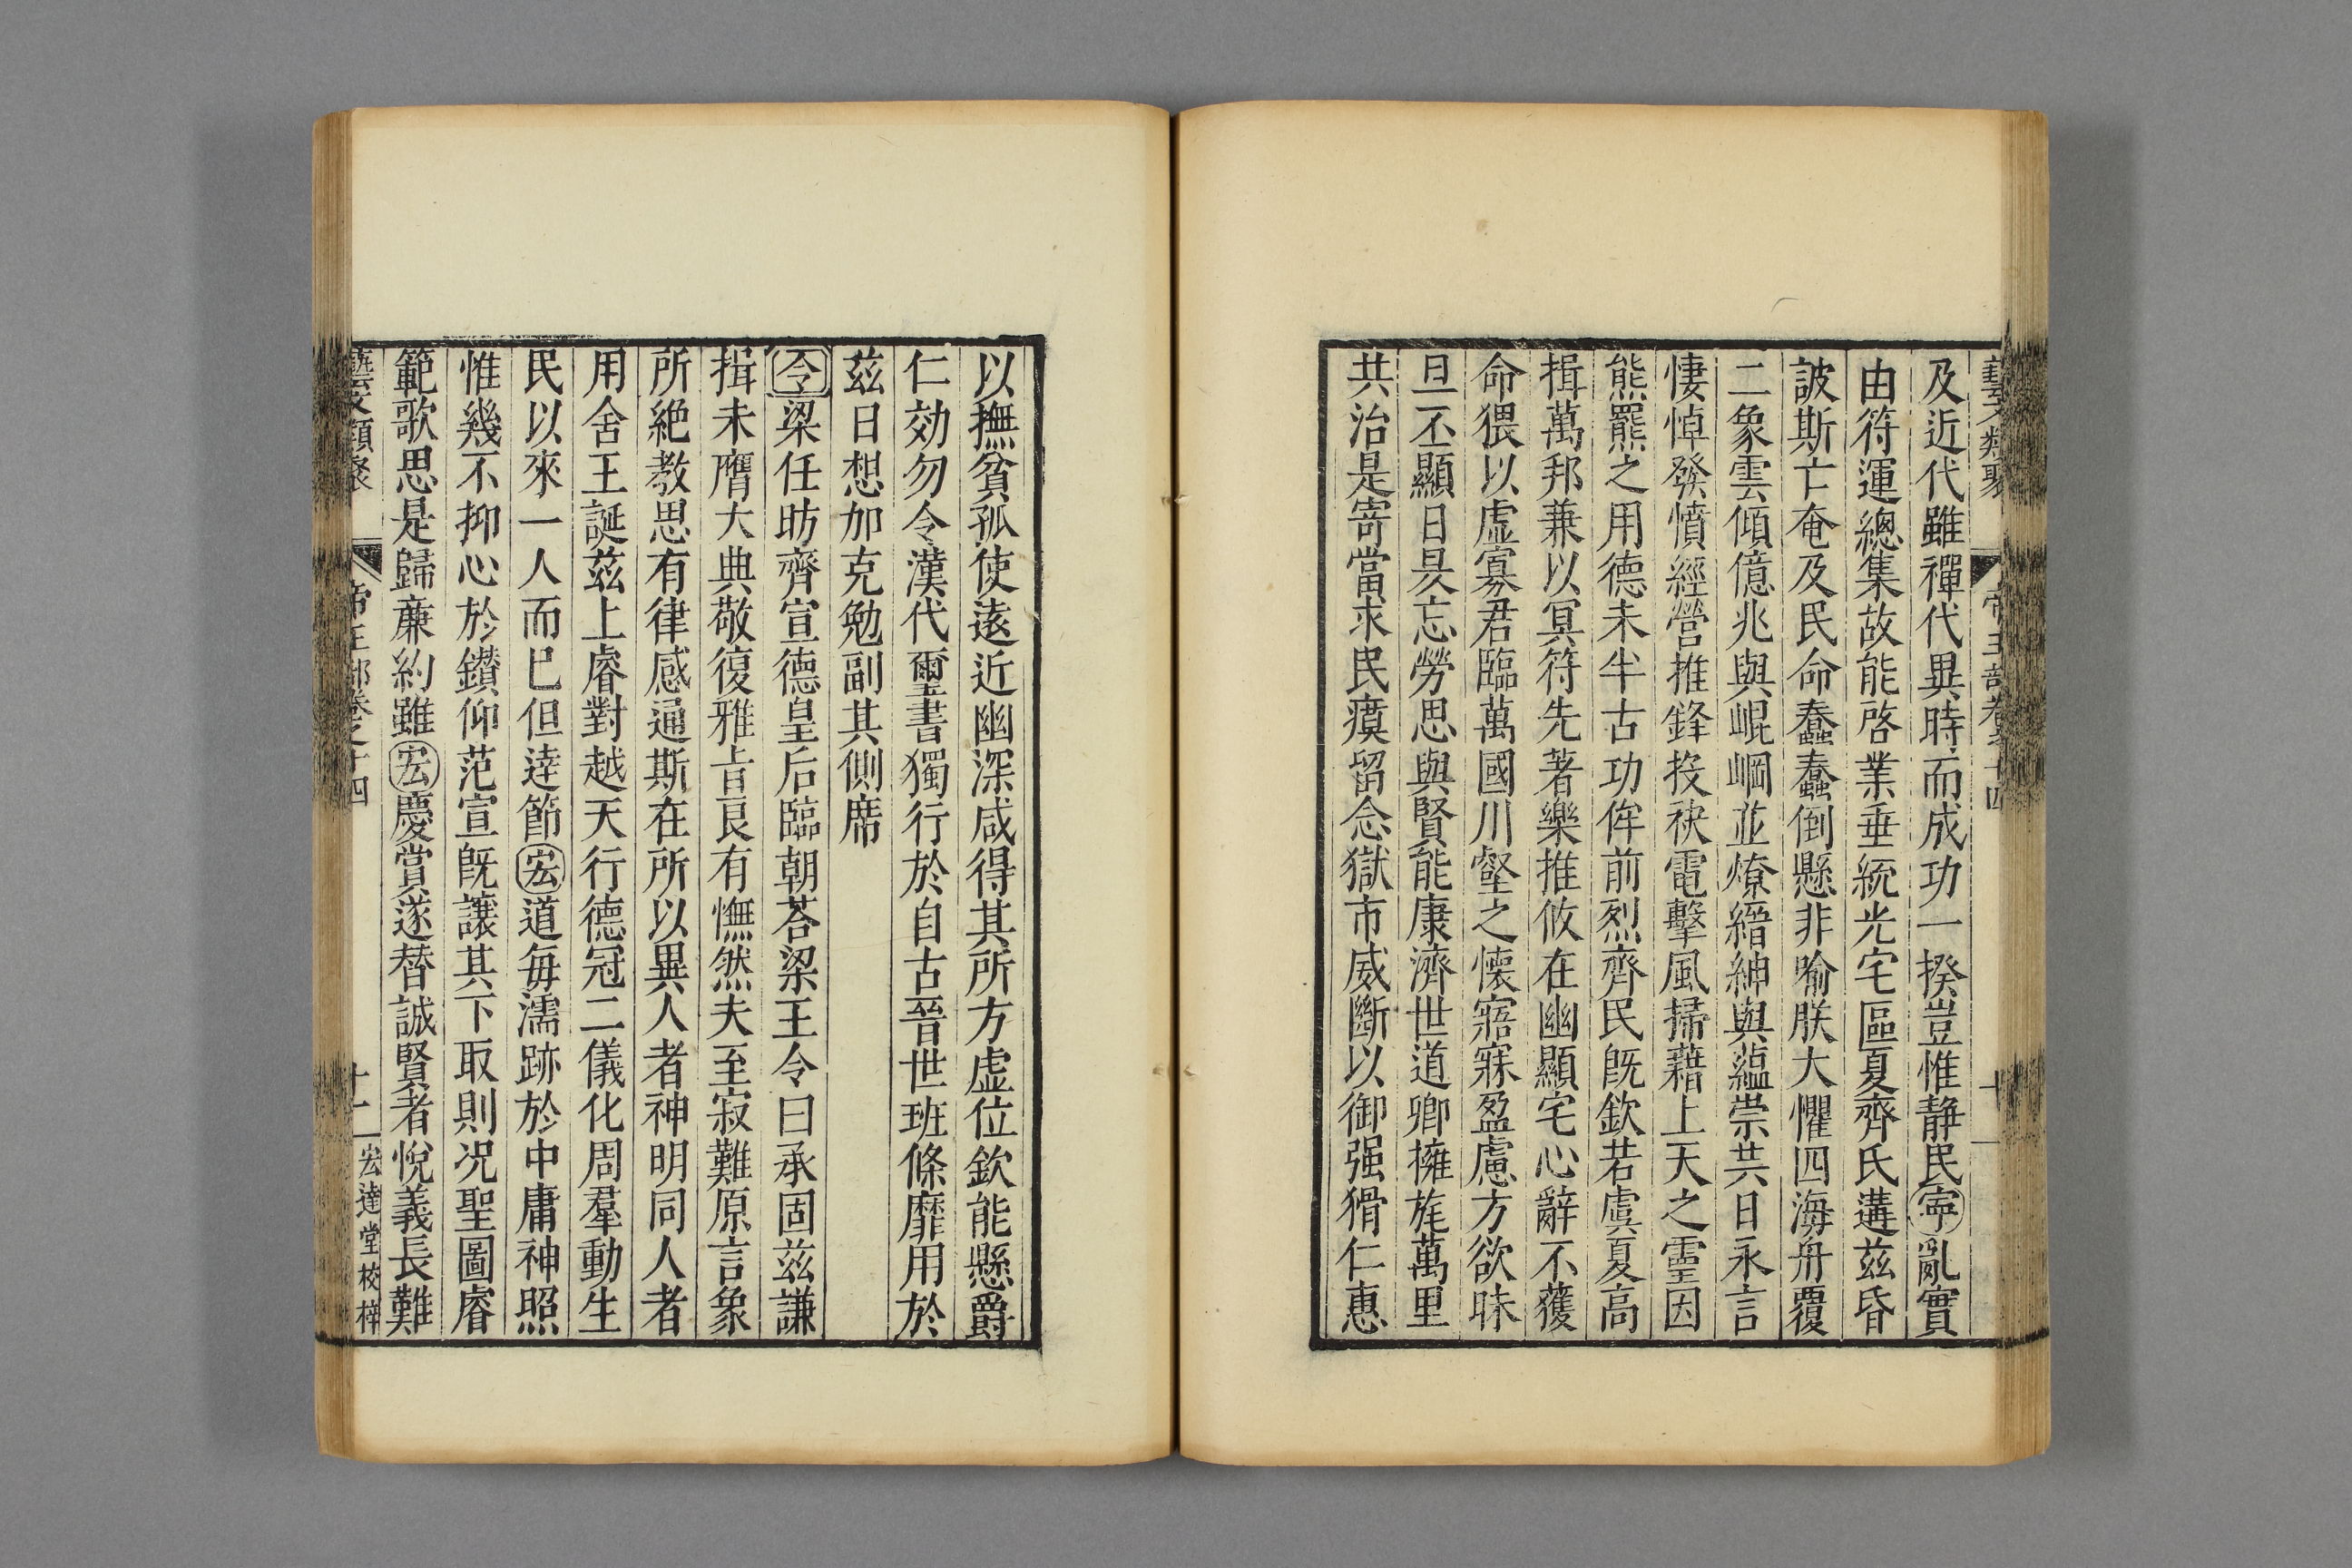 藝文類聚 帝王部卷之十四 十一
及近代雖禪代異時而成功一揆豈惟静民寕亂實
由符運總集故能啓業垂統光宅區夏齊氏遘茲昏
詖斯亡奄及民命蠢蠢倒懸非喻朕大懼四海舟覆
二象雲傾億兆與崐岡並燎縉紳與蘊崇共日永言
悽悼發憤經營推鋒投袂電擊風掃藉上天之靈因
熊羆之用德未半古功侔前烈齊民旣欽若虞夏高
揖萬邦兼以冥符先著樂推攸在幽顯宅心辭不獲
命猥以虛寡君臨萬國川壑之懷寤寐盈慮方欲昧
旦丕顯日昃忘勞思與賢能康濟世道卿擁旄萬里
共治是寄當求民瘼留念獄市威斷以御强猾仁惠
以撫貧孤使遠近幽深咸得其所方虛位欽能懸爵
仁効勿令漢代璽書獨行於自古晉世班條靡用於
茲日想加克勉副其側席
令梁任昉齊宣德皇后臨朝荅梁王令曰承固茲謙
揖未膺大典敬復雅旨良有憮然夫至寂難原言象
所絶教思有律感通斯在所以異人者神明同人者
用舍王誕茲上睿對越天行德冠二儀化周羣動生
民以來一人而已但逹節宏道毎濡跡於中庸神照
惟幾不抑心於鑚仰范宣旣讓其下取則况聖圖睿
範歌思是歸亷約雖宏慶賞遂替誠賢者悅義長難
藝文類聚 帝王部卷之十四 十一 宏達堂校梓